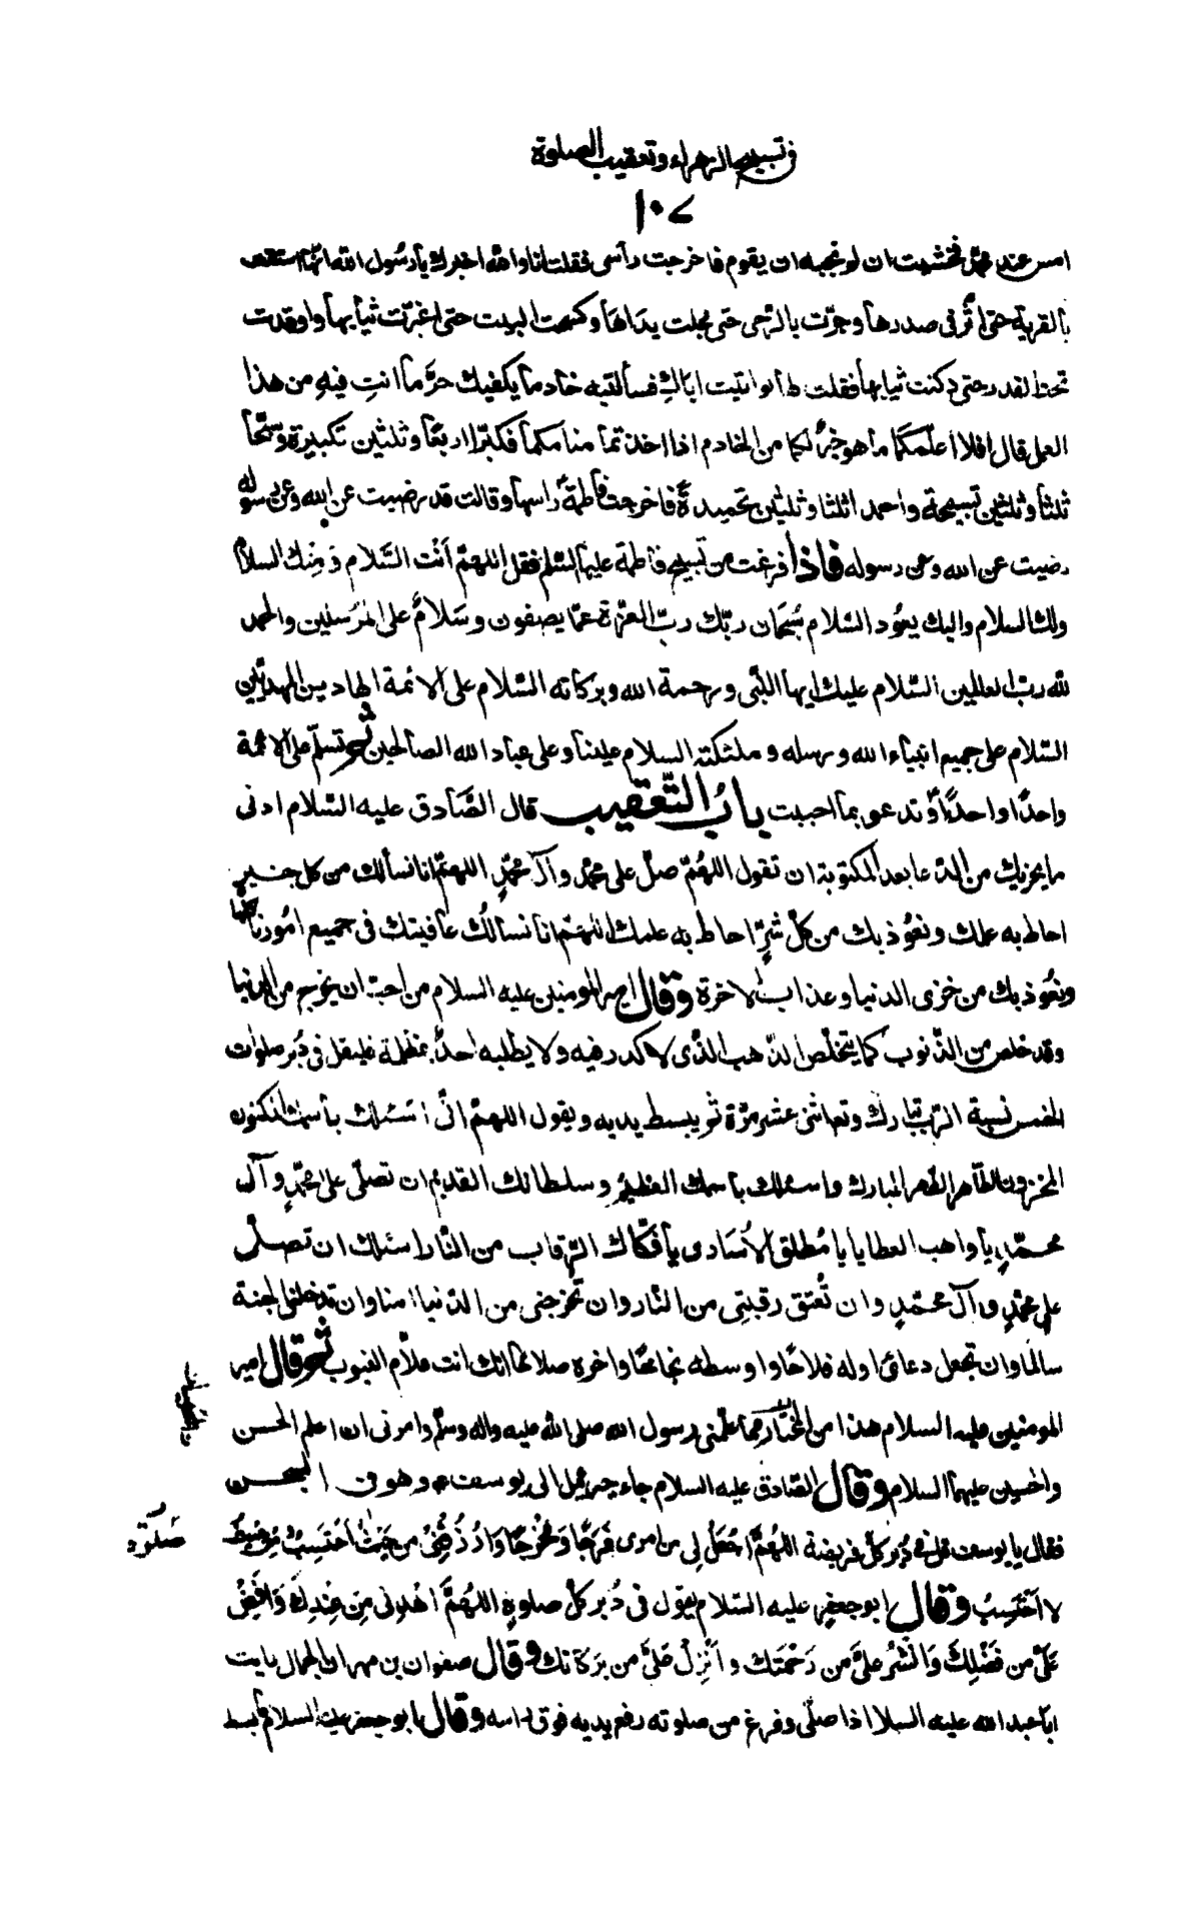 فی تسبیح الزهراء وتعقیب الصلوة
١٠٧
امس عند محمد فخشیت ان لو نجبه ان یقوم فاخرجت رأسی فقلت انا والله اخبرك یا رسول الله انها استقت
بالقربة حتی اثر فی صدرها وجرّت بالرحی حتی مجلت یداها وكسحت البیت حتی اغبرّت ثیابها واوقدت
تحت القدر حتی دكنت ثیابها فقلت لها لو اتیت اباكِ فسألتیه خادماً یكفیك حرّ ما انتِ فیه من هذا
العمل قال افلا اعلّمكما ما هو خیرٌ لكما من الخادم اذا اخذتما منامكما فكبّرا اربعًا وثلثین تكبیرة وسبّحا
ثلثاً وثلثین تسبیحة واحمدا ثلثا وثلثین تحمیدةً فاخرجت فاطمة رأسها وقالت قد رضیت عن الله وعن رسوله
رضیت عن الله وعن رسوله فاذا فرغت من تسبیح فاطمة علیها السّلم فقل اللهمّ اَنْت السَّلام ومِنْك السلام
ولك السلام والیك یعُود السّلام سُبحَان ربّك ربّ العزّة عمّا یصفون وسَلامٌ علی المرْسَلین والحمد
لله ربّ العالمین السّلام علیك ایها النّبی ورحمة الله وبركاته السّلام علی الائمة الهادین المهدیّین
السّلام علی جمیع انبیاء الله ورسله وملئكته السلام علینا وعلی عباد الله الصالحین ثم تسلّم علی الائمّة
واحدًا واحدًا وتدعو بما احببت بابُ التّعقیب قال الصَّادق علیه السّلام ادنی
ما یجزیك من الدّعا بعد المكتوبة ان تقول اللهُمّ صلّ علی محمّد وآل محمّدٍ اللهمّ انا نسألك من كل خیرٍ
احاط به علمك ونعُوذ بك من كلّ شرٍّ احاط به علمك اللهمّ انا نسألُك عافیتك فی جمیع امُورنا كلها
ونعُوذ بك من خزی الدنیا وعذاب الاخرة وقال امیر المومنین علیه السلام من احبّ ان یخرج من الدنیا
وقد خلص من الذّنوب كما یتخلّص الذّهب الذّی لا كدر فیه ولا یطلبه احدٌ بمظلمة فلیقل فی دُبر صلوات
الخمس نسبة الرّب تبارك وتعا اثنی عشر مرّة ثم یبسط یدیه ویقول اللهمّ انّی اسئلك باسمك المكنون
المخزون الطّاهر الطّهر المبارك واسئلك باسمك العظیم وسلطانك القدیم ان تصلّی علی محمّدٍ وآل
محمّدٍ یا واهب العطایا یا مُطلق الاُسَاری یا فكّاك الرّقاب من النّار اسئلك ان تصلّی
علی محمّدٍ وآل محمّدٍ وان تُعتق رقبتی من النّار وان تخرجنی من الدّنیا امنا وان تدخلنی الجنة
سالمًا وان تجعل دعائی اوله فلاحًا واوسطه نجاحًا واخره صلاحًا انك انت علاّم الغیوب ثم قال امیر
المومنین علیه السلام هذا من المختار مما علّمنی رسول الله صلی الله علیه واله وسلّم وامرنی ان اعلم الحسن
والحسین علیهما السلام وقال الصّادق علیه السلام جاء جبرئیل الی یوسف وهو فی السجن
فقال یا یوسف قل فی دُبر كلّ فریضة اللهُمَّ اجْعَلْ لِی من امری فَرَجًا وَمَخْرجًا وَارْزُقْنِیْ من حَیْثُ اَحْتَسِبُ ومِنْ حَیْثُ
لا اَحْتَسِبُ وقال ابو جعفر علیه السّلام یقول فی دُبر كلّ صلوةٍ اللهُمَّ اهْدِنِی مِنْ عِنْدِكَ وَاَفِضْ
عَلَیَّ من فَضْلِكَ وَانْشُرْ علَیَّ من رَحْمَتك واَنْزِلْ عَلَیَّ من بَرَكاتك وقال صفوان بن مهران الجمال رایت
ابا عبد الله علیه السلا اذا صلّی وفرغ من صلوته رفع یدیه فوق راسه وقال ابو جعفر علیه السلام ما بسط
صلوة